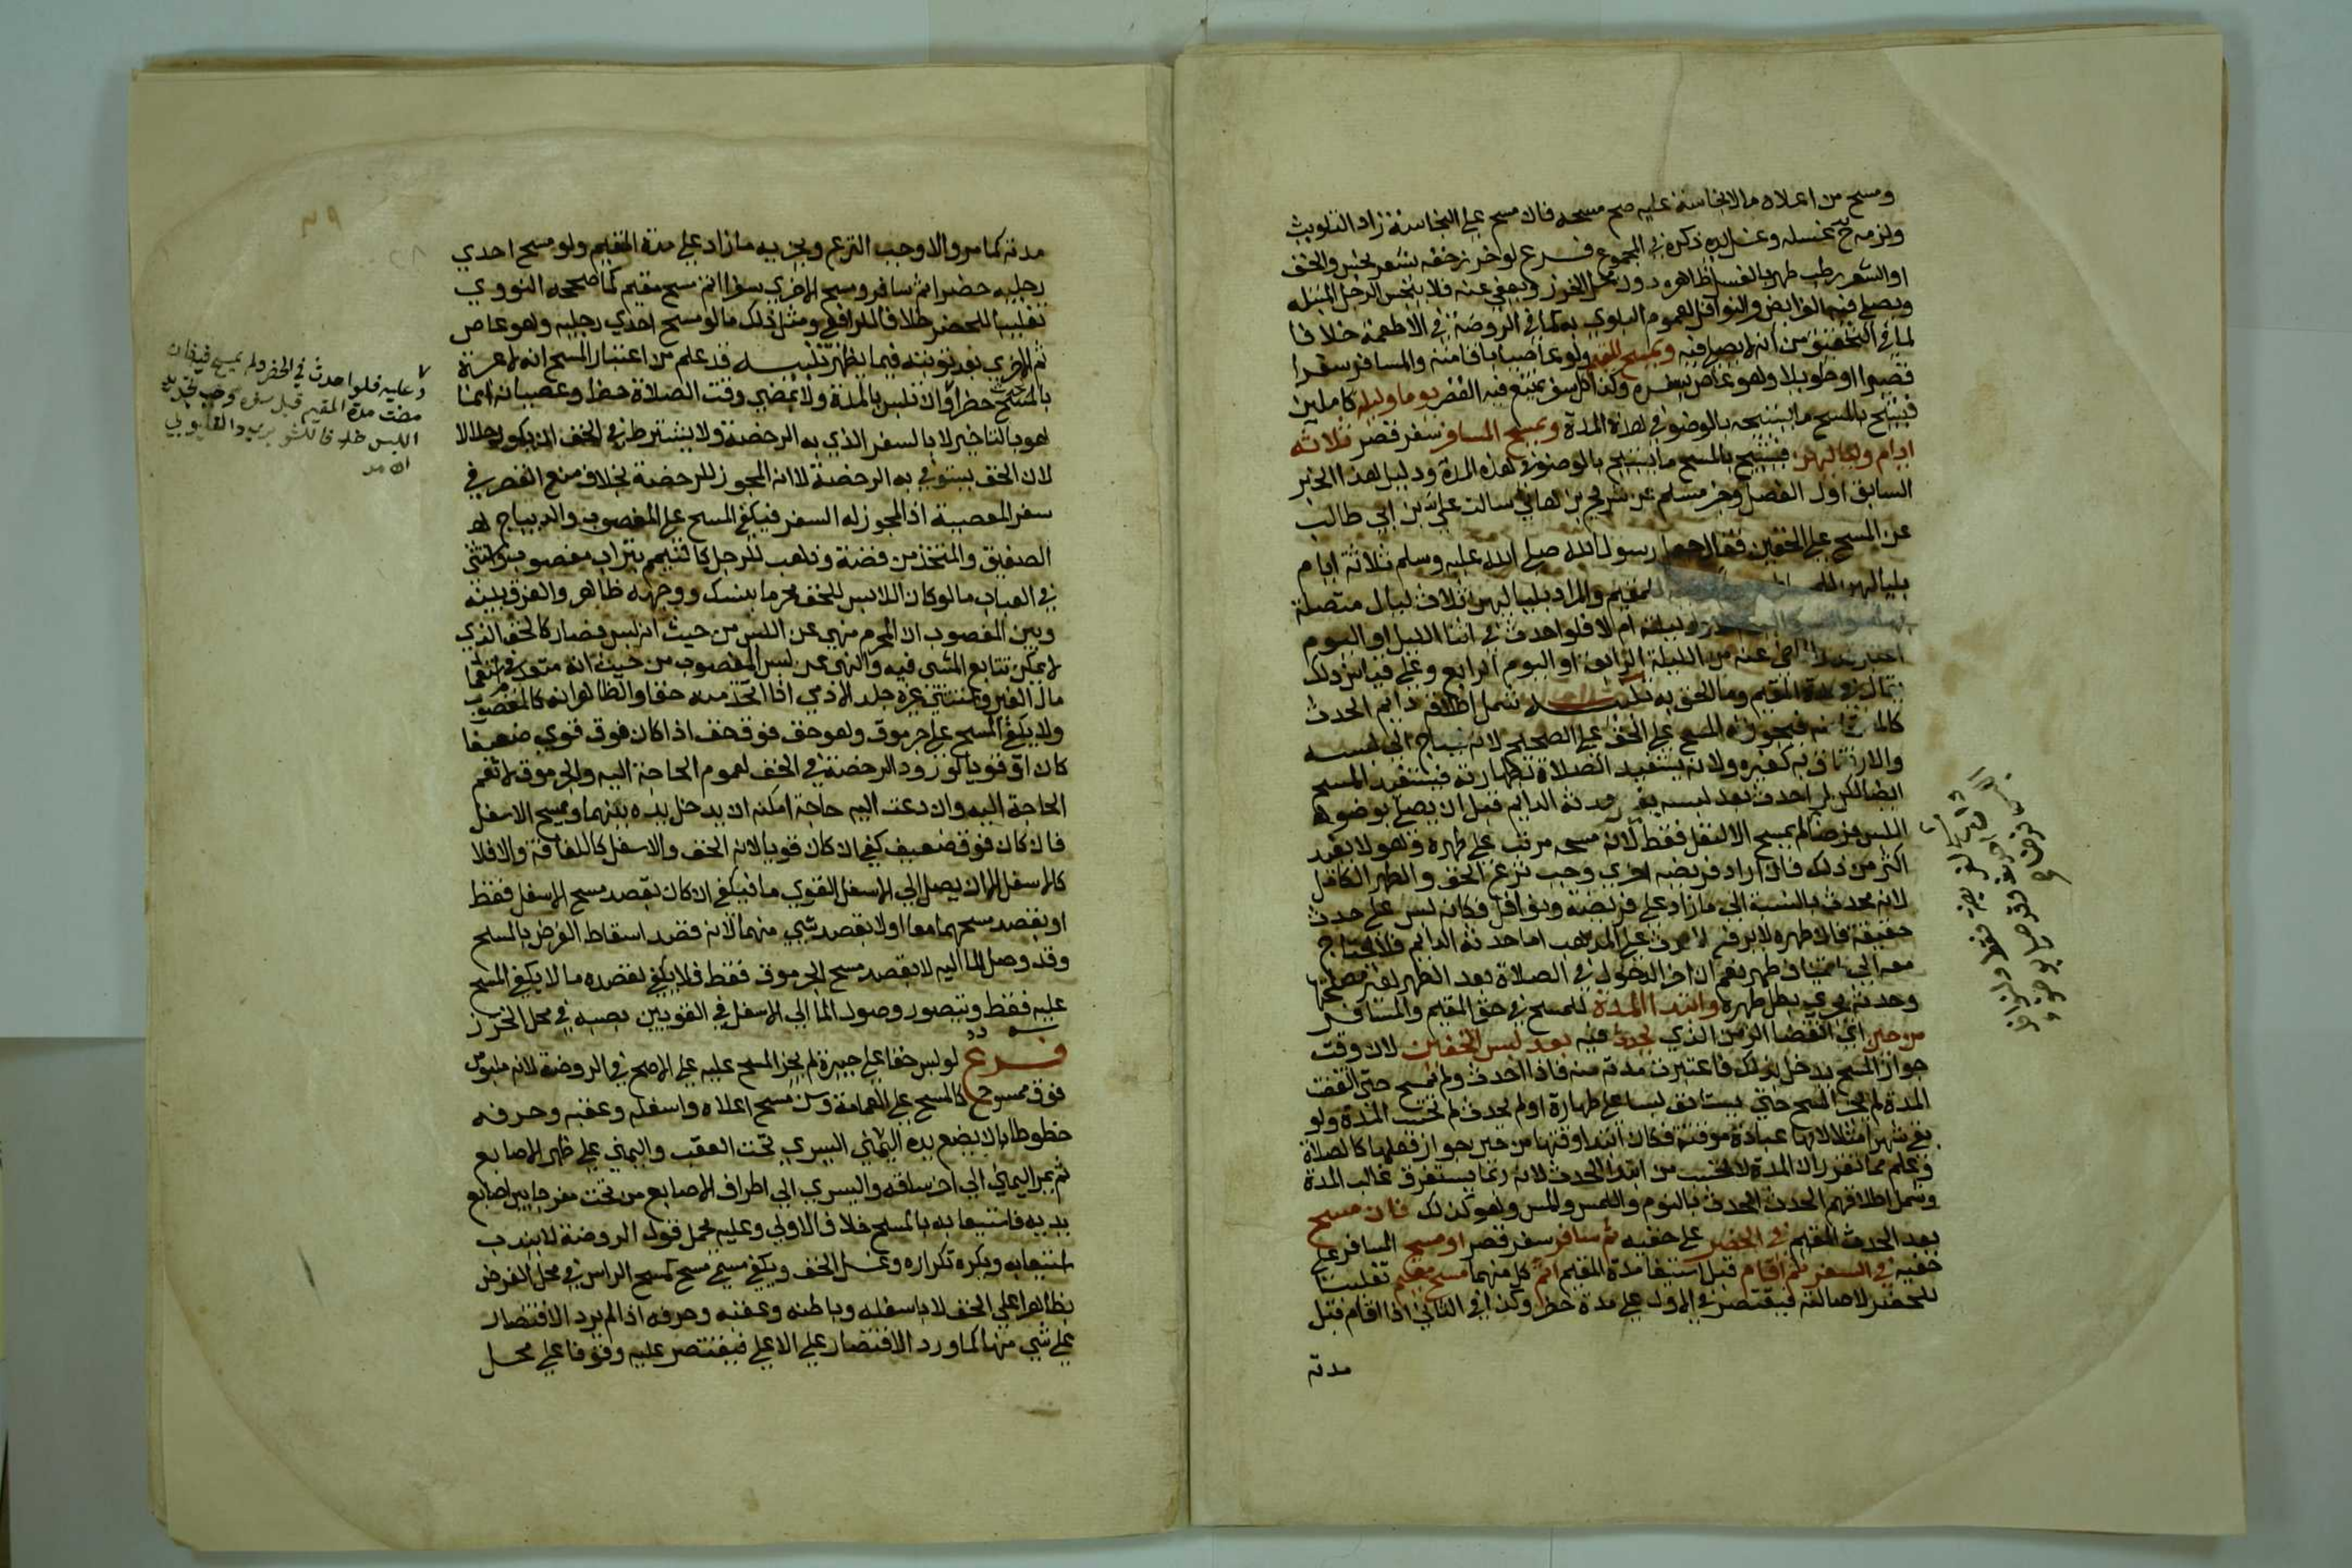 ومسح من اعلاه ما لا نجاسة عليه صح مسحه فان مسح على النجاسة زاد التلويث
ولزمه ح غسله وغسل يده ذكره في المجموع فرع لو خرز خفه بشعر نجس والخف
او الشعر رطب طهر بالغسل ظاهره دون محل الخرز ويعفى عنه فلا ينجس الرجل المبتلة
ويصلي فيه الفرايض والنوافل لعموم البلوي به كما في الروضة في الاطعمة خلافا
لما في التحقيق من انه لا يصلي فيه ويمسح المقيم ولو عاصيا باقامته والمسافر سفرا
قصيرا او طويلا وهو عاص بسفره وكذا كل سفر يمتنع فيه القصر يوما وليلة كاملين
فيستبيح بالمسح ما يستبيحه بالوضوء في هذه المدة ويمسح المسافر سفر قصر ثلاثة
ايام ولياليهن فيستبيح بالمسح ما يستبيح بالوضوء في هذه المدة ودليل هذا الخبر
السابق اول الفصل وخبر مسلم عن شريح بن هاني سالت علي بن ابي طالب
عن المسح على الخفين فقال جعل رسول الله صلى الله عليه وسلم ثلاثة ايام
بلياليهن للمقيم والمراد بلياليهن ثلاث ليال متصلة
ليلته ام لا فلو احدث في اثنا الليل او اليوم
من الليلة الرابعة او اليوم الرابع وعلى قياس ذلك
يقال في مدة المقيم وما الحق به تنبيه شمل اطلاقه دايم الحدث
فيجوز له المسح على الخف على الصحيح لانه يحتاج الى لبسه
والارتفاق به كغيره ولانه يستفيد الصلاة بطهارته فيستفيد المسح
ايضا لكن لو احدث بعد لبسه غير حدثه الدايم قبل ان يصلي بوضوء
اللبس فرضا لم يمسح الا لنفل فقط لان مسحه مرتب على طهره وهو لا يفيد
اكثر من ذلك فان اراد فريضة اخري وجب نزع الخف والطهر الكامل
لانه محدث بالنسبة الى ما زاد على فريضة ونوافل فكانه لبس على حدث
حقيقة فان طهره لا يرفع الحدث على المذهب اما حدثه الدايم فلا يحتاج
معه الى استيناف طهر نعم ان اخر الدخول في الصلاة بعد الطهر لغير مصلحتها
وحدثه يجري بطل طهره وابتدا المدة للمسح في حق المقيم والمسافر
من حين اي انقضا الزمن الذي يحدث فيه بعد لبس الخفين لان وقت
جواز المسح يدخل بذلك فاعتبرت مدته منه فاذا احدث ولم يمسح حتى انقضت
المدة لم يجز المسح حتى يستانف لبسا على طهارة او لم يحدث لم تحسب المدة ولو
بقي شهرا مثلا لانها عبادة موقتة فكان ابتدا وقتها من حين جواز فعلها كالصلاة
وعلم مما تقرر ان المدة لا تحسب من ابتدا الحدث لانه ربما يستغرق غالب المدة
وشمل اطلاقهم الحدث الحدث بالنوم واللمس والمس وهو كذلك فان مسح
بعد الحدث المقيم في الحضر على خفيه ثم سافر سفر قصر او مسح المسافر على
خفيه في السفر ثم اقام قبل استيفا مدة المقيم اتم كل منهما مسح مقيم تغليبا
للحضر لاصالته فيقتصر في الاول على مدة حضر وكذا في الثاني اذا اقام قبل
مدته
مدته كما مر والا وجب النزع ويجزيه ما زاد على مدة المقيم ولو مسح احدي
رجليه حضرا ثم سافر ومسح الاخري سفرا اتم مسح مقيم كما صححه النووي
تغليبا للحضر خلافا للرافعي ومثل ذلك ما لو مسح احدي رجليه وهو عاص
ثم الاخري بعد توبته فيما يظهر تنبيه قد علم من اعتبار المسح انه لا عبرة
بالحدث حضرا وان تلبس بالمدة ولا بمضي وقت الصلاة حضرا وعصيانه انما
هو بالتاخير لا بالسفر الذي به الرخصة ولا يشترط في الخف ان يكون حلالا
لان الخف يستوفي به الرخصة لا انه المجوز للرخصة بخلاف منع القصر في
سفر المعصية اذ المجوز له السفر فيكفي المسح على المغصوب والديباج
الصفيق والمتخذ من فضة وذهب للرجل كالتيمم بتراب مغصوب واستثني
في العباب ما لو كان اللابس للخف محرما بنسك ووجهه ظاهر والفرق بينه
وبين المغصوب ان المحرم منهي عن اللبس من حيث انه لبس فصار كالخف الذي
لا يمكن تتابع المشي فيه والنهي عن لبس المغصوب من حيث انه متعد في استعمال
مال الغير واستثني غيره جلد الادمي اذا اتخذ منه خفا والظاهر انه كالمغصوب
ولا يكفي المسح على جرموق وهو خف فوق خف اذا كان فوق قوي ضعيفا
كان او قويا لورود الرخصة في الخف لعموم الحاجة اليه والجرموق لا تعم
الحاجة اليه وان دعت اليه حاجة امكنه ان يدخل يده بينهما ويمسح الاسفل
فان كان فوق ضعيف كفي ان كان قويا لانه الخف والاسفل كاللفافة والا فلا
كالاسفل الا ان يصل الى الاسفل القوي ما فيكفي ان كان بقصد مسح الاسفل فقط
او بقصد مسحهما معا او لا بقصد شي منهما لانه قصد اسقاط الفرض بالمسح
وقد وصل الما اليه لا بقصد مسح الجرموق فقط فلا يكفي لقصده ما لا يكفي المسح
عليه فقط ويتصور وصول الما الى الاسفل في القويين بصبه في محل الخرز
فرع لو لبس خفا على جبيرة لم يجز المسح عليه على الاصح في الروضة لانه ملبوس
فوق ممسوح كالمسح على العمامة وسن مسح اعلاه واسفله وعقبه وحرفه
خطوطا بان يضع يده اليسري تحت العقب واليمني على ظهر الاصابع
ثم يمر اليمني الى اخر ساقه واليسري الى اطراف الاصابع من تحت مفرجا بين اصابع
يديه فاستيعابه بالمسح خلاف الاولي وعليه يحمل قول الروضة لا يندب
استيعابه ويكره تكراره وغسل الخف ويكفي مسمي مسح كمسح الراس في محل الفرض
بظاهر اعلى الخف لا باسفله وباطنه وعقبه وحرفه اذ لم يرد الاقتصار
على شي منها كما ورد الاقتصار على الاعلى فيقتصر عليه وقوفا على محل
وعليه فلو احدث في الحضر ولم يمسح فيه فان
مضت مدة المقيم قبل سفره وجب تجديد
اللبس خلافا للشوبري والقليوبي